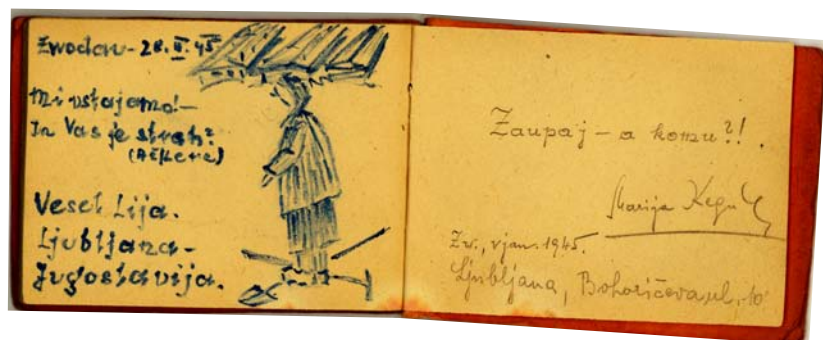 Zwodau - 28.II.45
Mi vstajamo! -
In Vas je strah?
(Aškerc)
Vesel Lija.
Ljubljana -
Jugoslavija.
Zaupaj - a komu?!.
Marija
Zv., v jan. 1945.
Ljubljana, Bohoričeva ul. 10